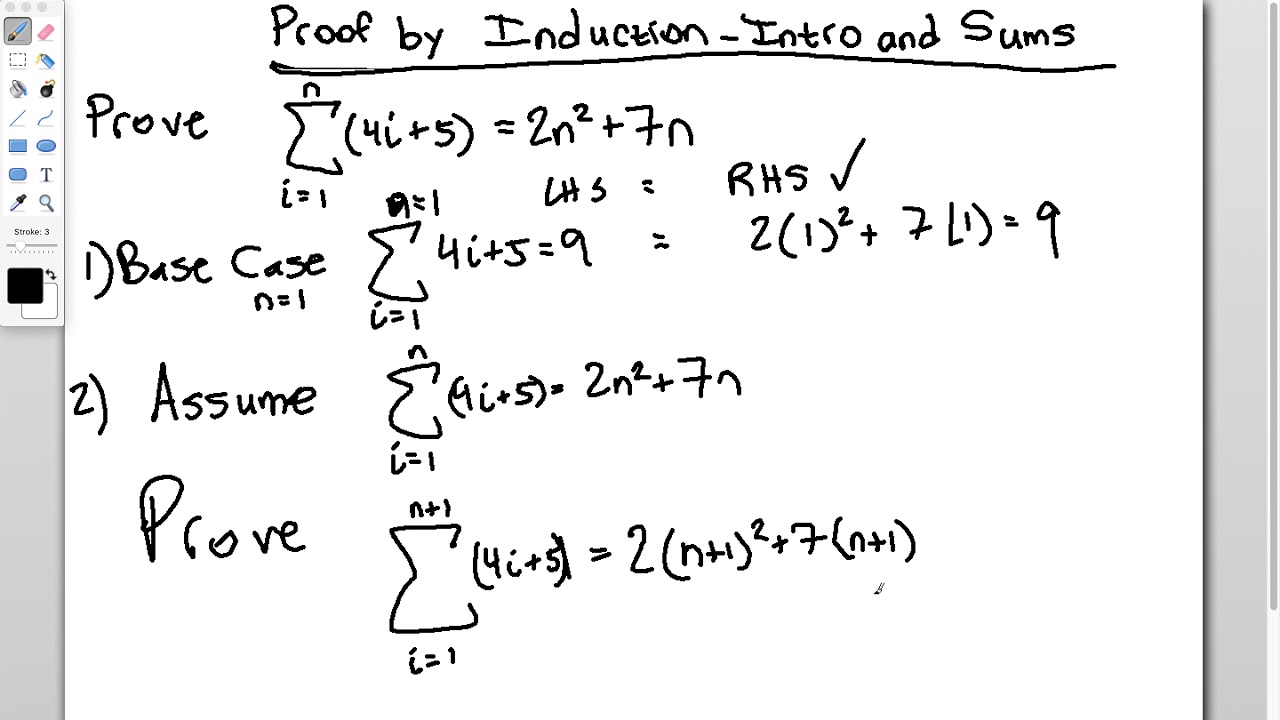 Proof by Induction - Intro and Sums
Prove \sum_{i=1}^{n} (4i+5) = 2n² + 7n
LHS = RHS ✓
1) Base Case n=1 \sum_{i=1}^{n=1} 4i+5 = 9 = 2(1)² + 7(1) = 9
2) Assume \sum_{i=1}^{n} (4i+5) = 2n² + 7n
Prove \sum_{i=1}^{n+1} (4i+5) = 2(n+1)² + 7(n+1)
T
Stroke: 3